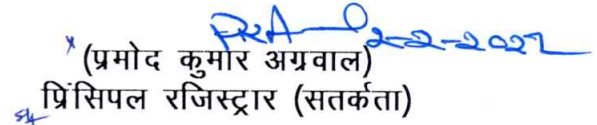 2-2-2022
(प्रमोद कुमार अग्रवाल)
प्रिंसिपल रजिस्ट्रार (सतर्कता)